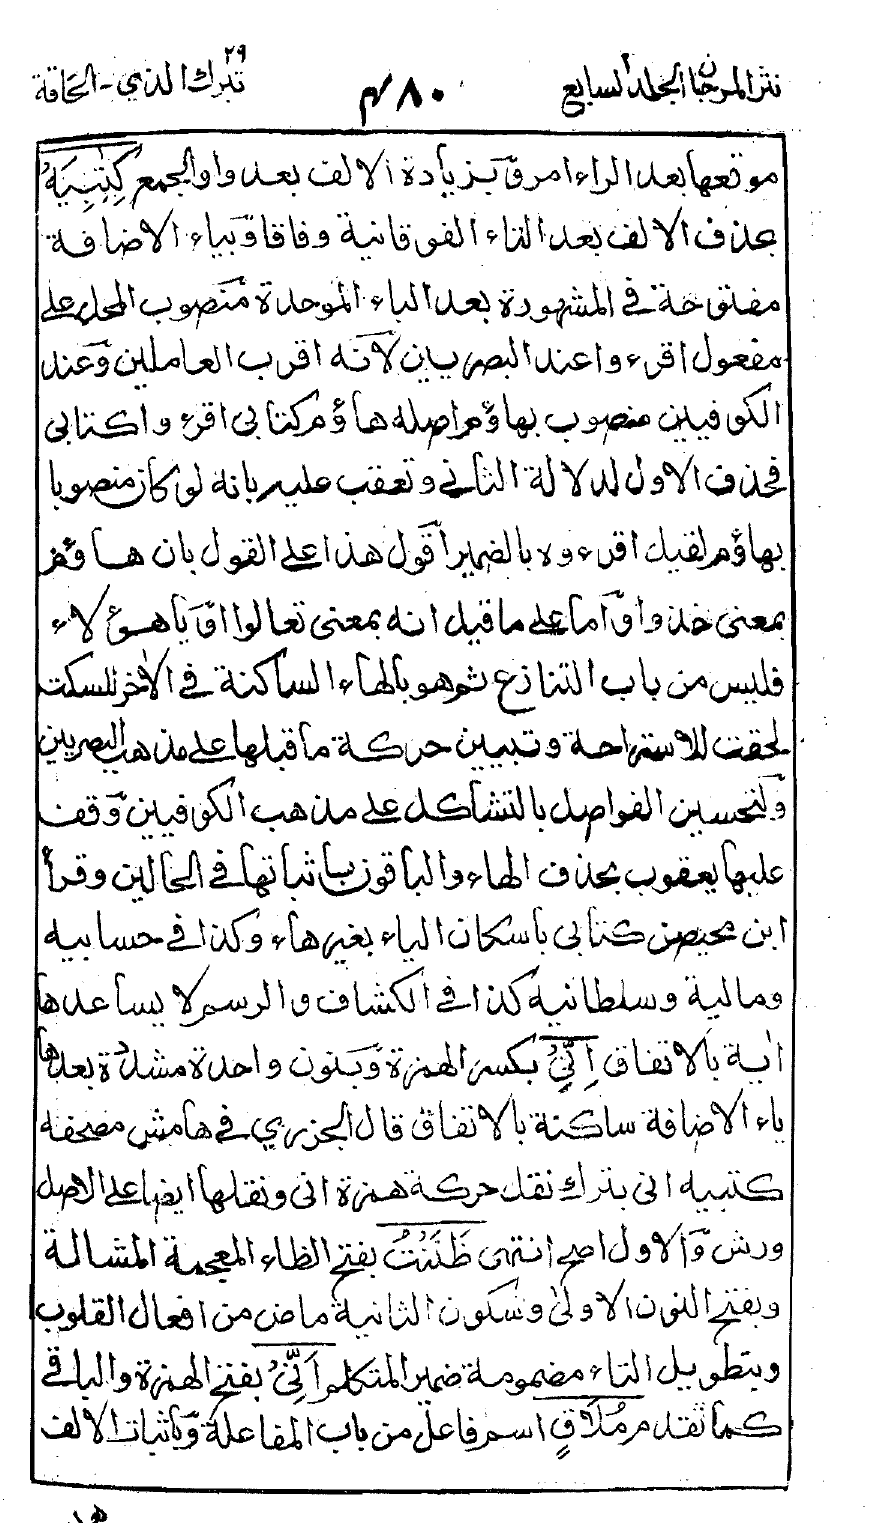 نثر المرجان الجلد السابع
٤٨٠
٢٩
تبرك الذي - الحاقة
موقعها بعد الراء امر وبزيادة الالف بعد واو الجمع كِتٰبِيَهْ
بحذف الالف بعد التاء الفوقانية وفاقا وبياء الاضافة
مفتوحة في المشهورة بعد الباء الموحدة منصوب المحل على
مفعول اقرءوا عند البصريين لانه اقرب العاملين وعند
الكوفيين منصوب بهاؤم اصله هاؤم كتابى اقرءوا كتابى
فحذف الاول لدلالة الثاني وتعقب عليه بانه لو كان منصوبا
بهاؤم لقيل اقرءوه بالضمير اقول هذا على القول بان هاؤم
بمعنى خذوا واما على ما قيل انه بمعنى تعالوا او يا هؤلاء
فليس من باب التنازع ثم هو بالهاء الساكنة في الاٰخر للسكت
لحقت للاستراحة وتبيين حركة ما قبلها على مذهب البصريين
ولتحسين الفواصل بالتشاكل على مذهب الكوفيين وقف
عليها يعقوب بحذف الهاء والباقون باثباتها في الحالين وقرأ
ابن محيصن كتابى باسكان الياء بغير هاء وكذا في حسابيه
وماليه وسلطانيه كذا في الكشاف والرسم لا يساعدها
اٰية بالاتفاق اِنِّيْ بكسر الهمزة وبنون واحدة مشددة بعدها
ياء الاضافة ساكنة بالاتفاق قال الجزري في هامش مصحفه
كتبيه انى بترك نقل حركة همزة انى ونقلها ايضا على الاصل
ورش والاول اصح انتهى ظَنَنْتُ بفتح الظاء المعجمة المشالة
وبفتح النون الاولى وسكون الثانية ماض من افعال القلوب
وبتطويل التاء مضمومة ضمير المتكلم اَنِّيْ بفتح الهمزة والباقي
كما تقدم مُلَاقٍ اسم فاعل من باب المفاعلة وباثبات الالف